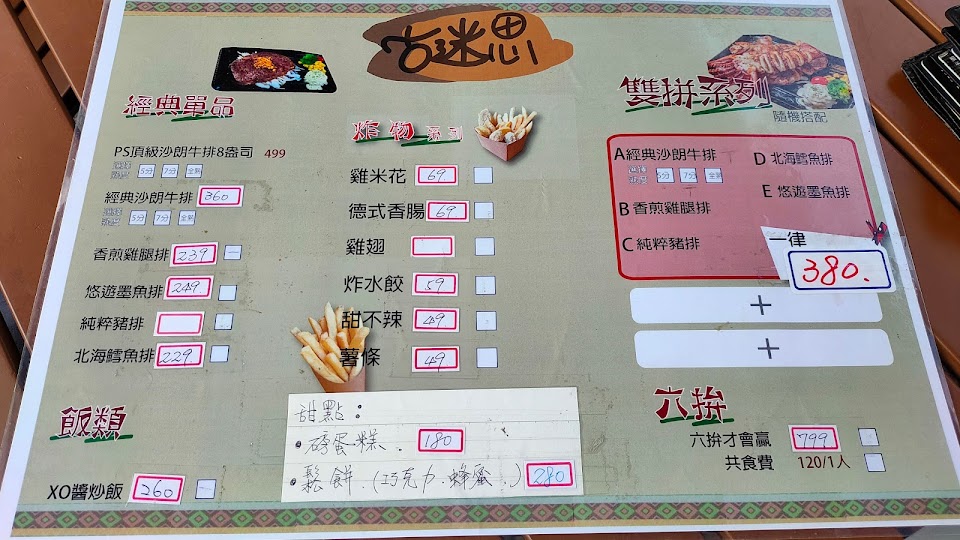 古迷思
經典單品
PS頂級沙朗牛排8盎司 499
5分 7分 全熟
經典沙朗牛排 360
5分 7分 全熟
香煎雞腿排 239
悠遊墨魚排 249
純粹豬排
北海鱈魚排 229
飯類
XO醬炒飯 260
炸物系列
雞米花 69
德式香腸 69
雞翅
炸水餃 59
甜不辣 49
薯條 49
甜點：
·磅蛋糕. 180
·鬆餅.(巧克力.蜂蜜.) 280
雙拼系列
隨機搭配
A經典沙朗牛排
5分 7分 全熟
B香煎雞腿排
C純粹豬排
D北海鱈魚排
E悠遊墨魚排
一律
380.
+
+
六拚
六拚才會贏 799
共食費 120/1人